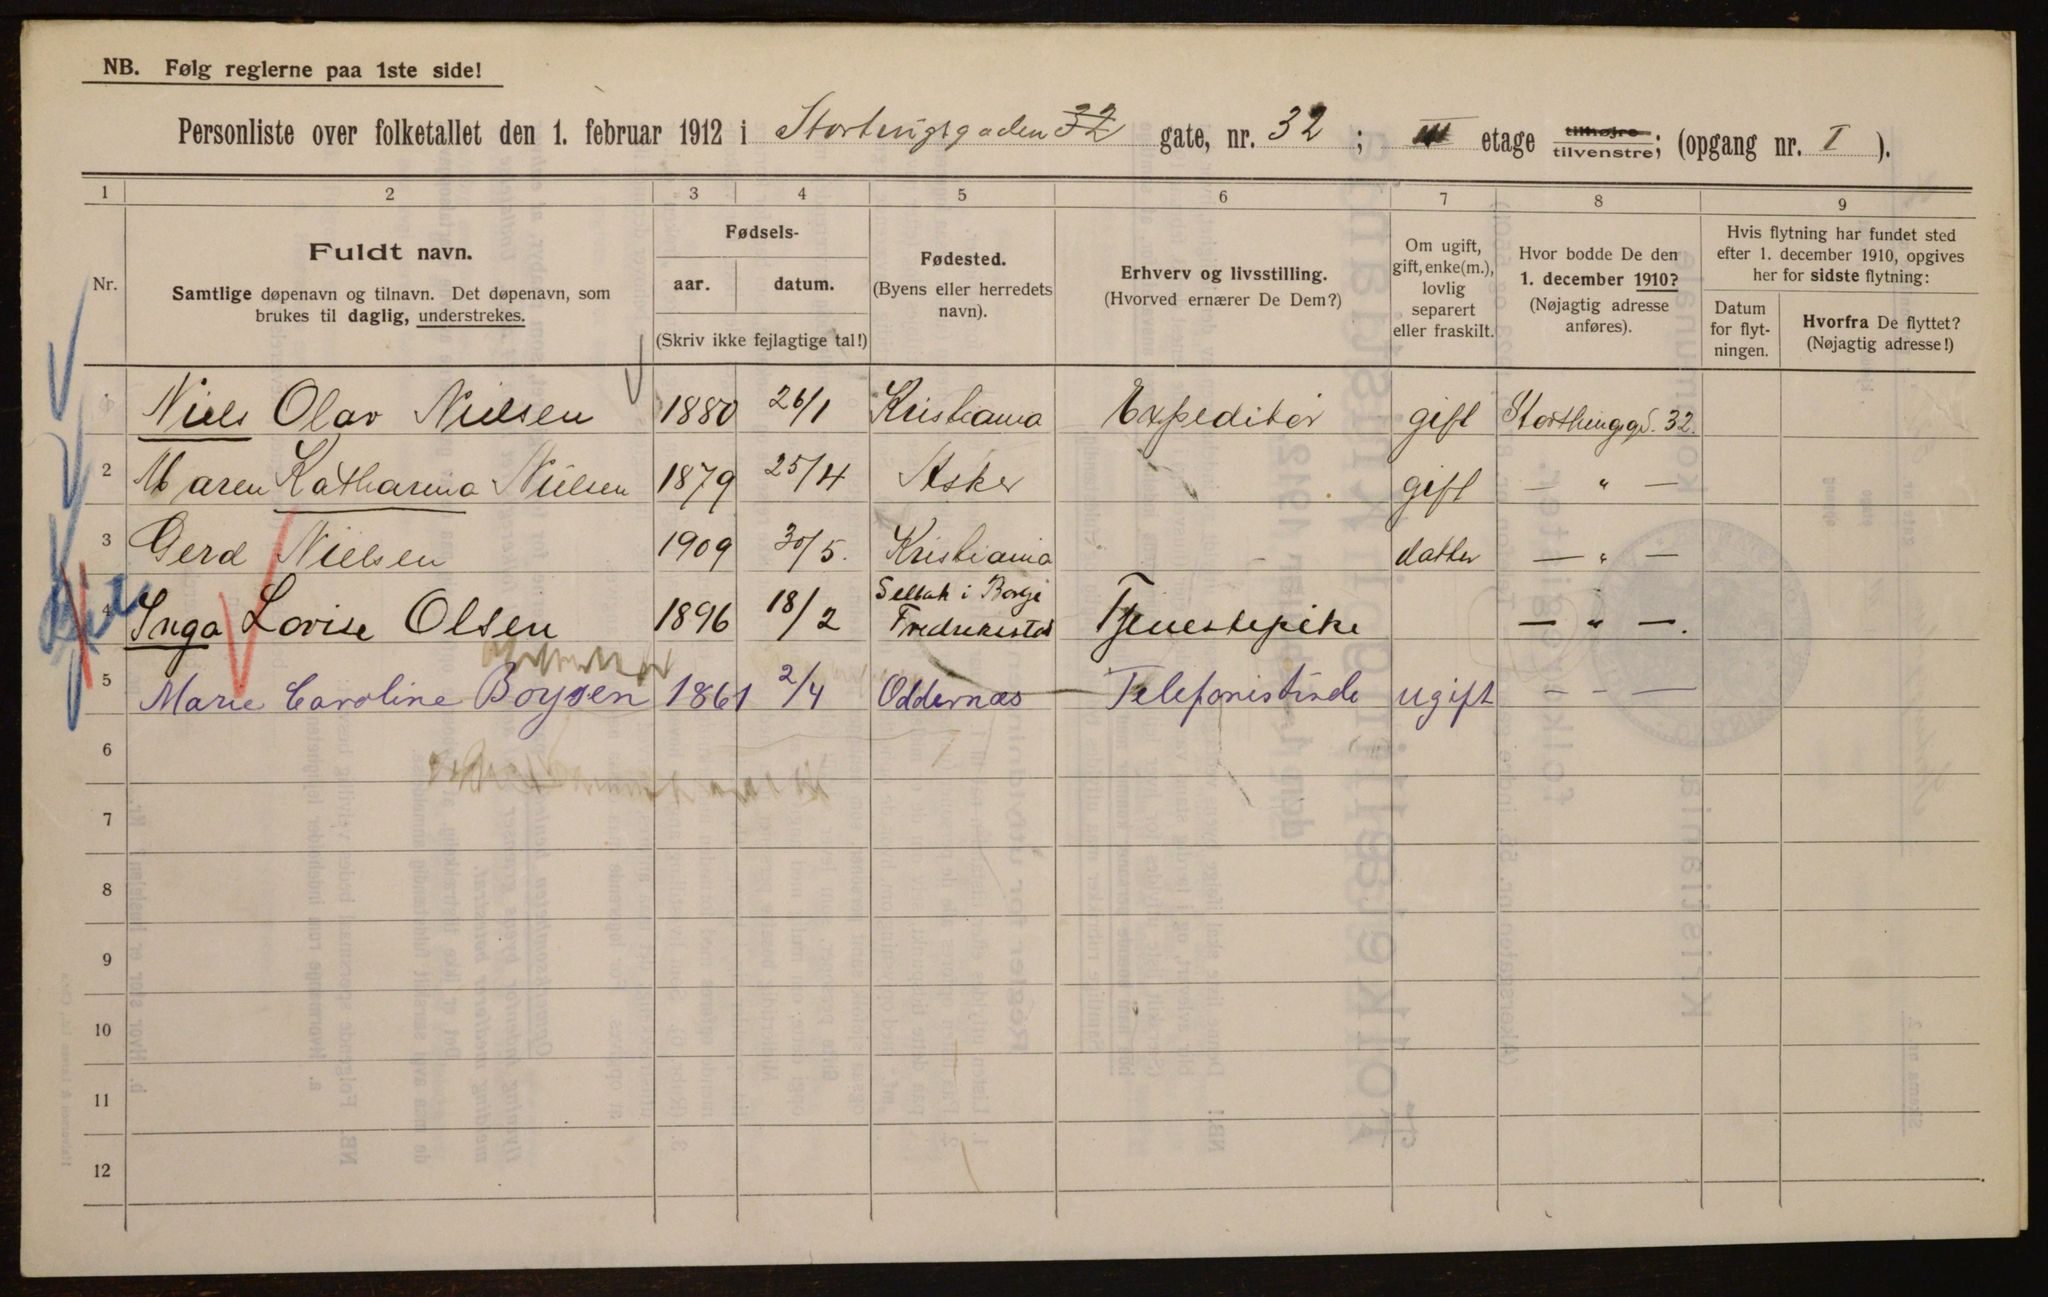 NB. Følg reglerne paa 1ste side!
Personliste over folketallet den 1. februar 1912 i Stortingsgaden 32 gate, nr. 32; III etage tilhøjre tilvenstre; (opgang nr. I).
1 2 3 4 5 6 7 8 9
Nr.
Fuldt navn.
Samtlige døpenavn og tilnavn. Det døpenavn, som
brukes til daglig, understrekes.
Fødsels-
aar. datum.
(Skriv ikke fejlagtige tal!)
Fødested.
(Byens eller herredets
navn).
Erhverv og livsstilling.
(Hvorved ernærer De Dem?)
Om ugift,
gift, enke(m.),
lovlig
separert
eller fraskilt.
Hvor bodde De den
1. december 1910?
(Nøjagtig adresse
anføres).
Hvis flytning har fundet sted
efter 1. december 1910, opgives
her for sidste flytning:
Datum
for flyt-
ningen.
Hvorfra De flyttet?
(Nøjagtig adresse!)
Niels Olav Nielsen 1880 26/1 Kristiania Expeditør gift Storthingsgd. 32.
2 Maren Katharina Nielsen 1879 25/4 Asker gift — " —
3 Gerd Nielsen 1909 30/5. Kristiania - datter — " —
4 Inga Lovise Olsen 1896 18/2 Selbak i Borge Fredrikstad Tjenestepike — " —.
5 Marie Caroline Boysen 1861 2/4 Oddernæs Telefonistinde ugift — - —
6
7
8
9
10
11
12